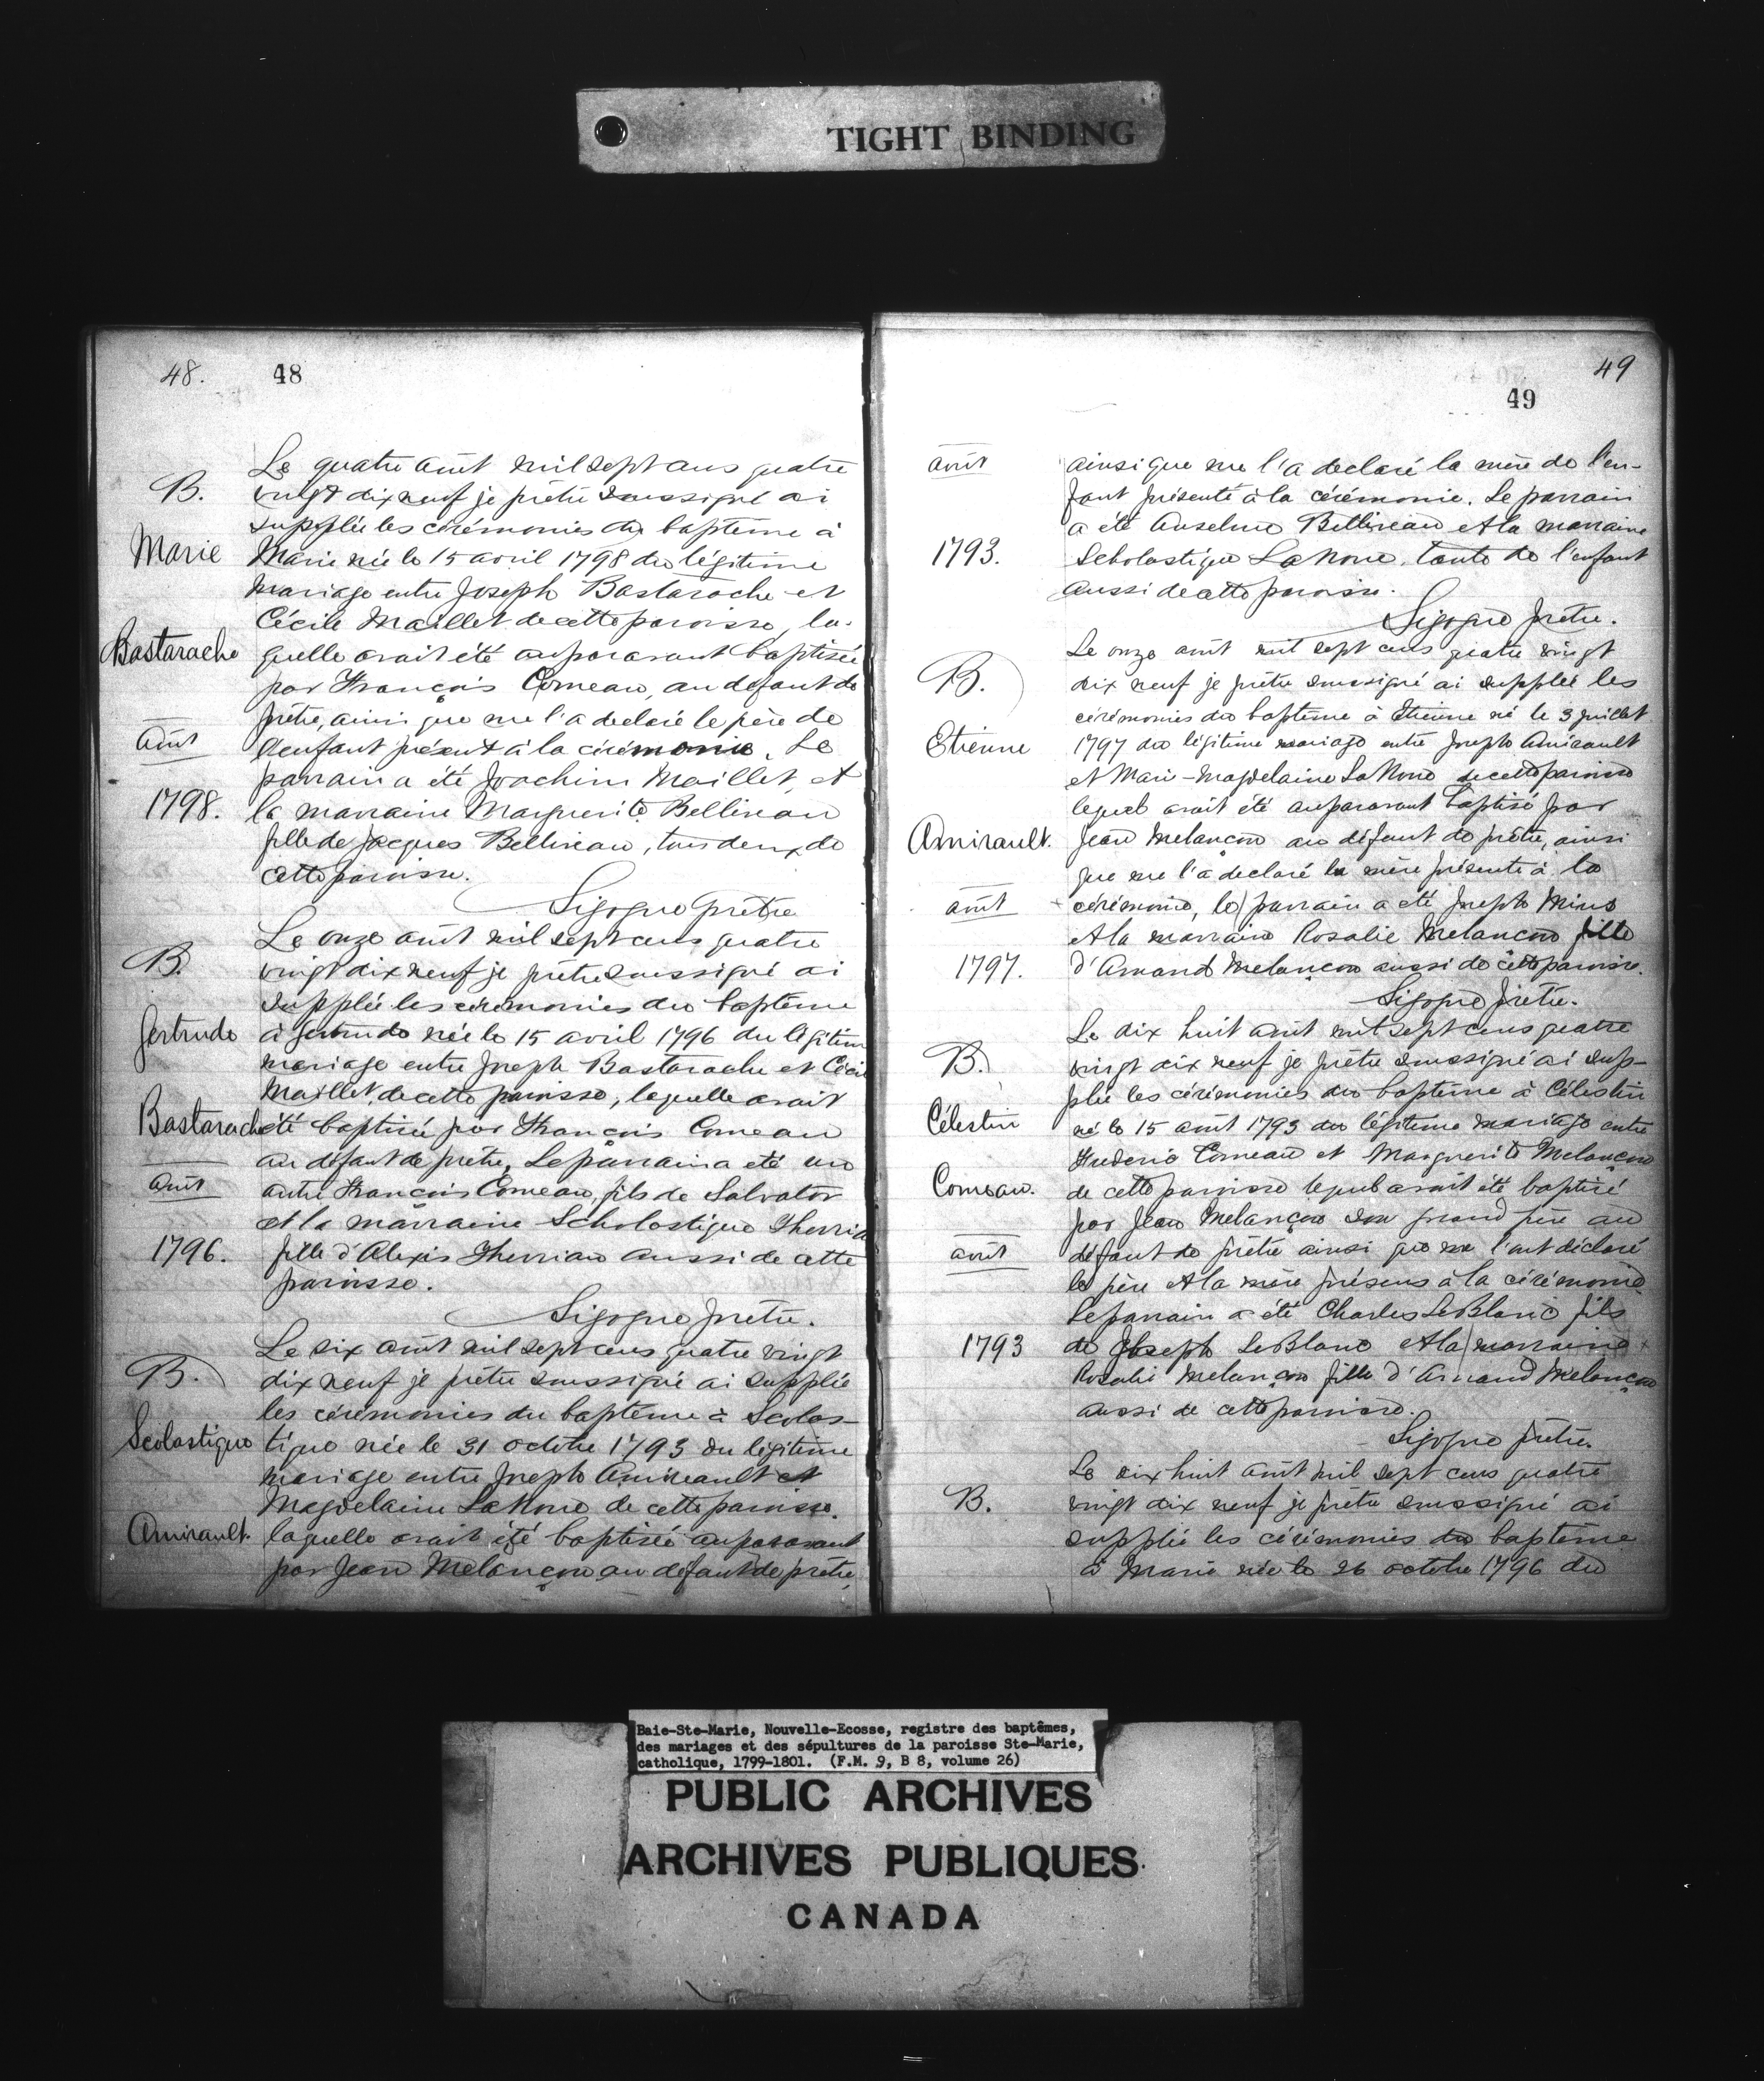 TIGHT BINDING
48. 48
Le quatre août mil sept cens quatre
B. vingt dix neuf je prêtre soussigné ai
supplée les cérémonies du baptême à
Marie Marie née le 15 avril 1798 du légitime
mariage entre Joseph Bastarache et
Cécile Maillet de cette paroisse, la-
Bastarache quelle avait été auparavant baptisée
par François Comeau, au défaut de
prêtre, ainsi que me l'a declaré le père de
août l'enfant présent à la cérémonie. Le
parrain a été Joachim Maillet, et
1798. la marraine Marguerite Belliveau
fille de Jacques Belliveau, tous deux de
cette paroisse.
Sigogne prêtre
Le onze août mil sept cens quatre
B. vingt dix neuf je prêtre soussigné ai
supplée les cérémonies du baptême
Gertrude à Gertrude née le 15 avril 1796 du légitime
mariage entre Joseph Bastarache et Cécile
Maillet de cette paroisse, laquelle avait
Bastarache été baptisée par François Comeau
au défaut de prêtre, Le parrain a été un
août autre François Comeau, fils de Salvator
et la marraine Scholastique Therriau
1796. fille d'Alexis Therriau aussi de cette
paroisse.
Sigogne prêtre.
Le dix août mil sept cens quatre vingt
B. dix neuf je prêtre soussigné ai supplée
les cérémonies du baptême à Scolas-
Scolastique tique née le 31 octobre 1793 du légitime
mariage entre Joseph Amireault et
Magdelaine LaNoue de cette paroisse.
Amirault. laquelle avait été baptisée auparavant
par Jean Melançon au défaut de prêtre,
49
49
août ainsi que me l'a declaré la mère de l'en-
fant présente à la cérémonie. Le parrain
a été Anselme Belliveau et la marraine
1793. Scholastique LaNoue, tante de l'enfant
aussi de cette paroisse.
Sigogne prêtre.
Le onze août mil sept cens quatre vingt
B. dix neuf je prêtre soussigné ai supplée les
cérémonies du baptême à Etienne né le 3 juillet
Etienne 1797 du légitime mariage entre Joseph Amirault
et Marie-Magdelaine LaNoue de cette paroisse
lequel avait été auparavant baptisé par
Amirault. Jean Melançon au défaut de prêtre, ainsi
que me l'a declaré la mère présente à la
août cérémonie, le parrain a été Joseph Mius
et la marraine Rosalie Melançon fille
1797. d'Amand Melançon aussi de cette paroisse.
Sigogne prêtre.
Le dix huit août mil sept cens quatre
B. vingt dix neuf je prêtre soussigné ai sup-
plée les cérémonies du baptême à Célestin
Célestin né le 15 août 1793 du légitime mariage entre
Frederic Comeau et Marguerite Melançon
Comeau. de cette paroisse lequel avait été baptisé
par Jean Melançon son grand père au
août défaut de prêtre ainsi que me l'ont déclaré
le père et la mère présens à la cérémonie
Le parrain a été Charles LeBlanc fils
1793 de Joseph LeBlanc et la marraine
Rosalie Melançon fille d'Amand Melançon
aussi de cette paroisse.
Sigogne prêtre.
Le dix huit août mil sept cens quatre
B. vingt dix neuf je prêtre soussigné ai
supplée les cérémonies du baptême
à Marie née le 26 octobre 1796 du
Baie-Ste-Marie, Nouvelle-Ecosse, registre des baptêmes,
des mariages et des sépultures de la paroisse Ste-Marie,
catholique, 1799-1801. (F.M. 9, B 8, volume 26)
PUBLIC ARCHIVES
ARCHIVES PUBLIQUES
CANADA